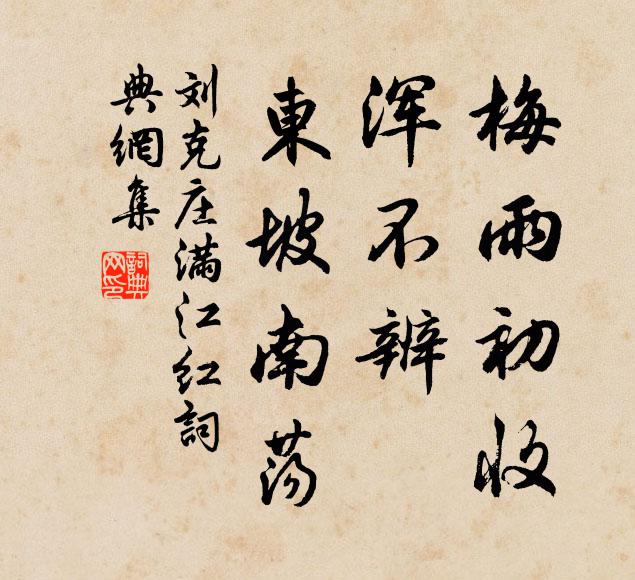 梅雨初收
浑不辨
東坡南荡
刘克庄满江红詞
典網集
詞典網印